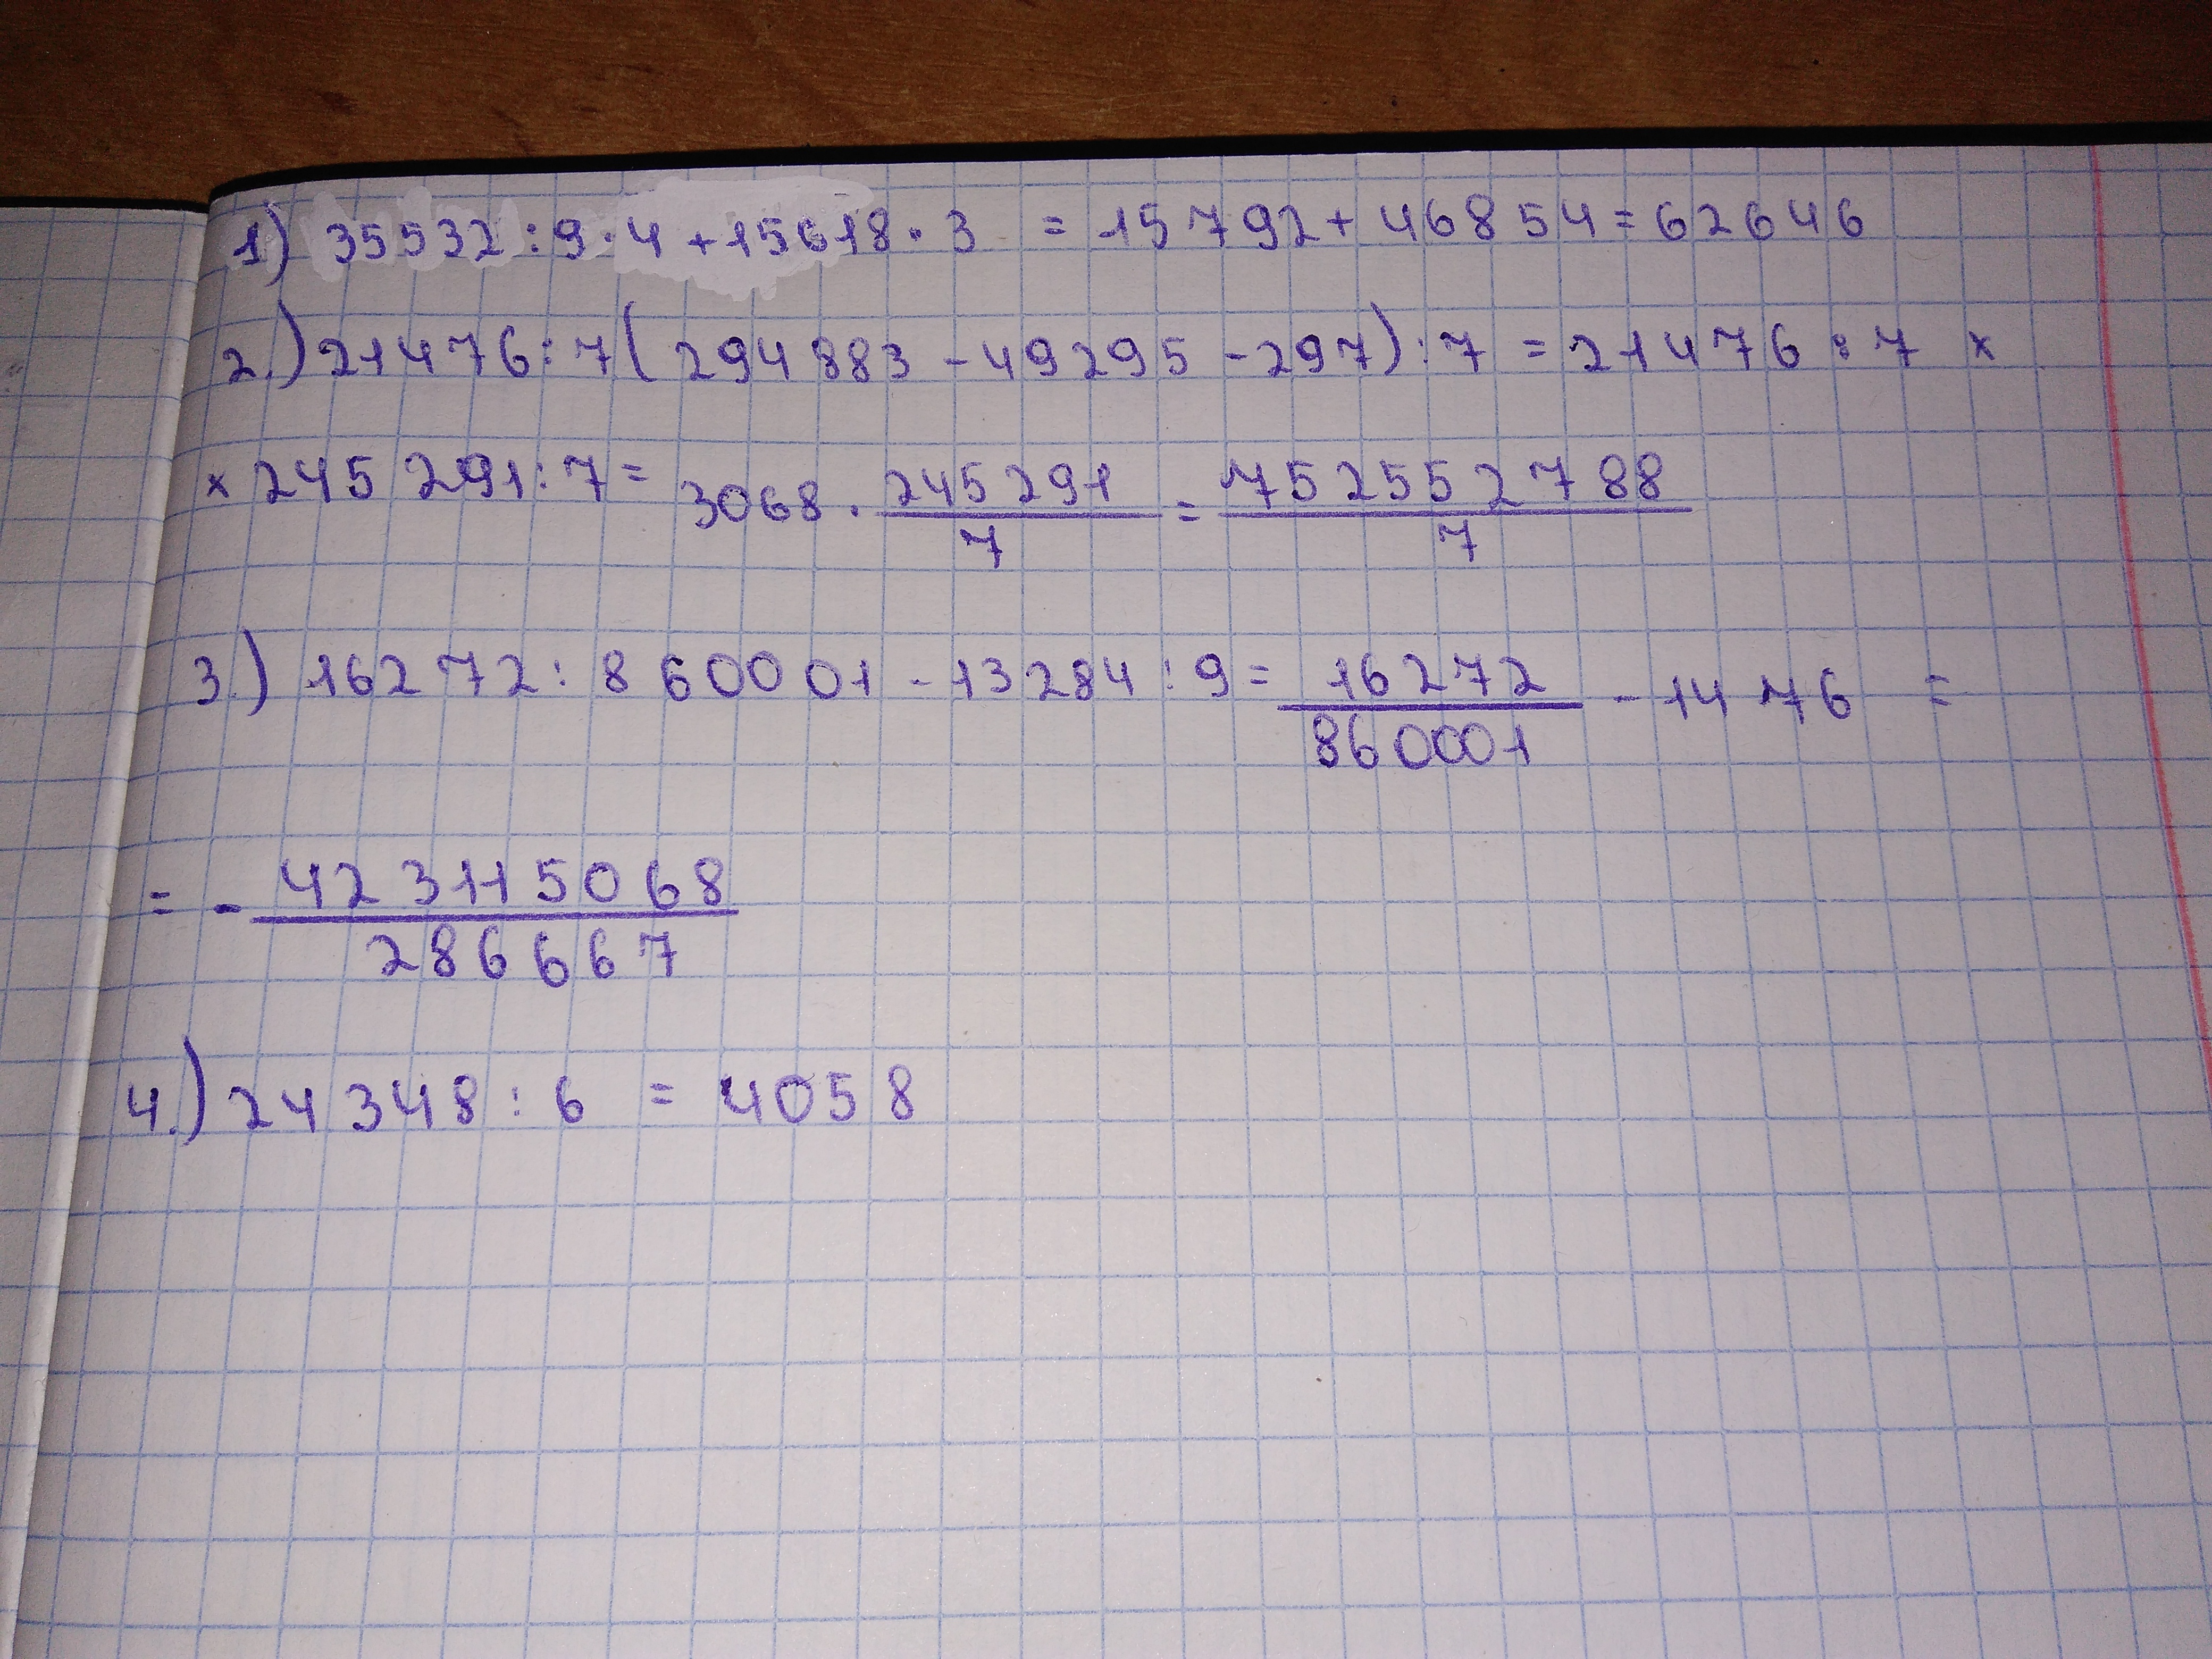 1) 35532 : 9 · 4 + 15618 · 3 = 15792 + 46854 = 62646
2.) 21476 : 7 ( 294883 - 49295 - 297 ) : 7 = 21476 : 7 ×
× 245291 : 7 = 3068 · 245291/7 = 752552788/7
3.) 16272 : 860001 - 13284 : 9 = 16272/860001 - 1476 =
= - 423115068/286667
4.) 24348 : 6 = 4058